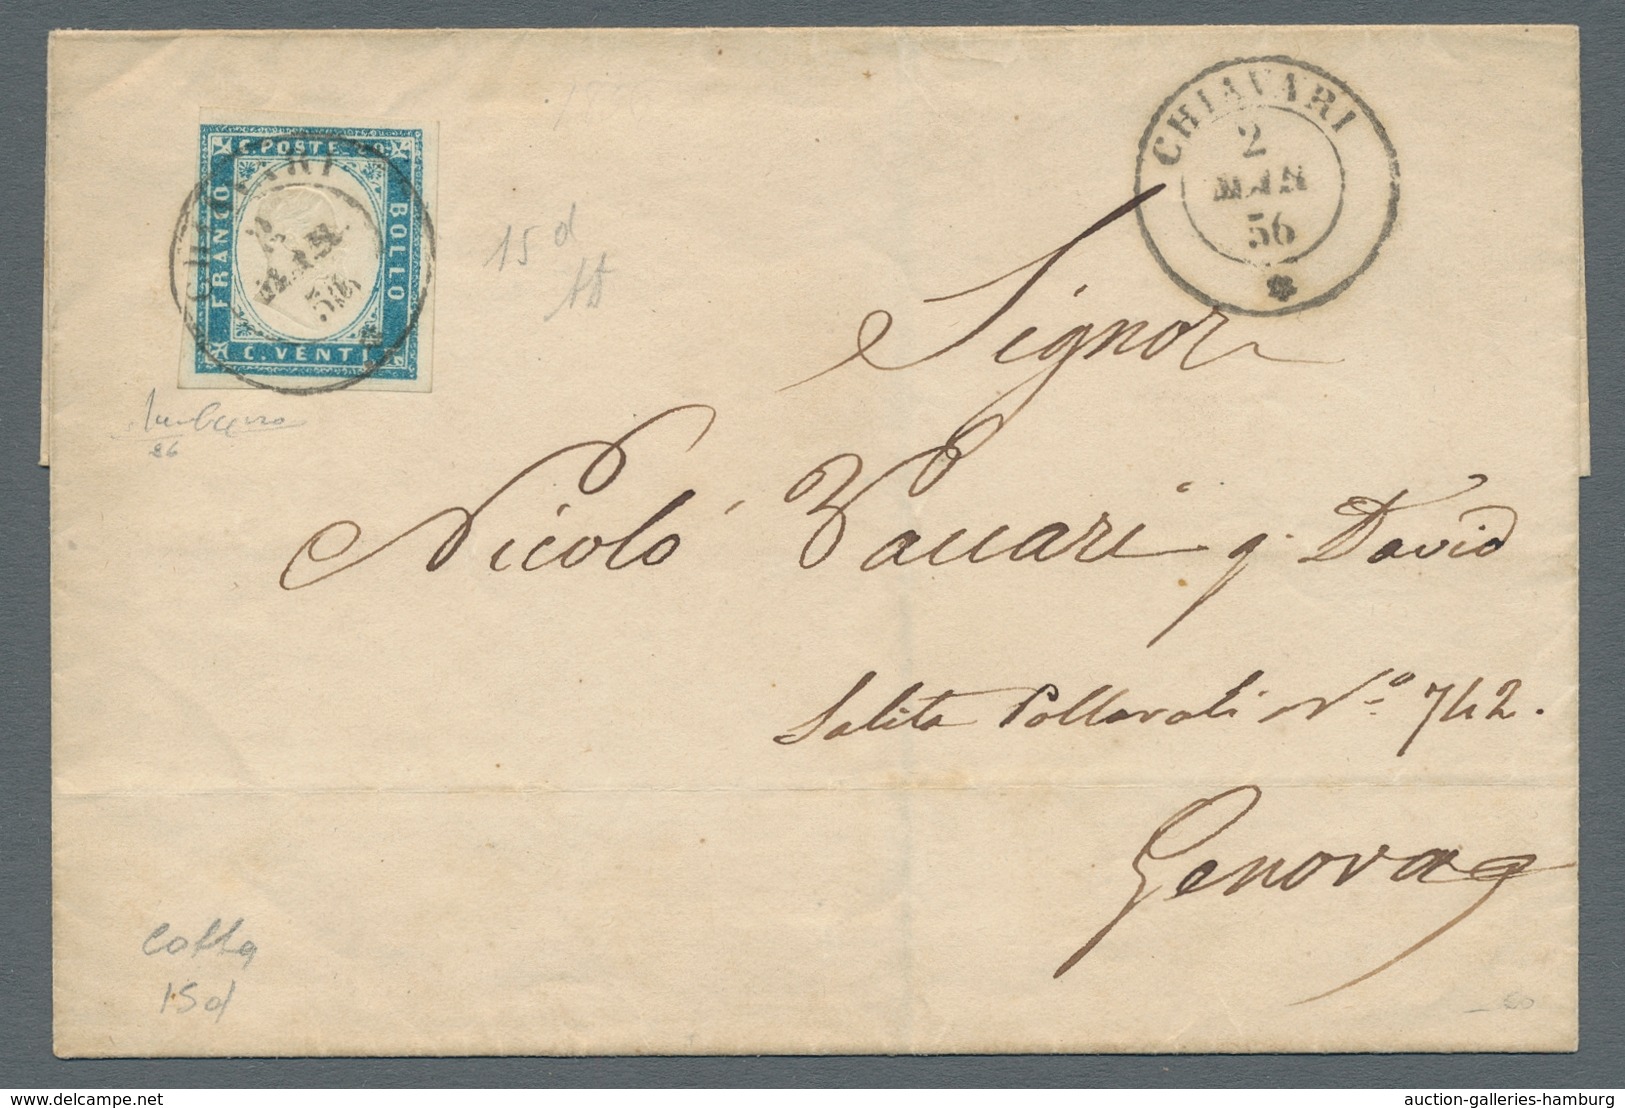 C. POSTE. 20.
FRANCO
BOLLO
C. VENTI
CHIAVARI
2
56
CHIAVARI
2
56
15 d
Signor
Nicolò Vaccari q. David
Salita Pollaroli No. 742.
Genova
Cotta
15d
delcampe.net
auction-galleries-hamburg